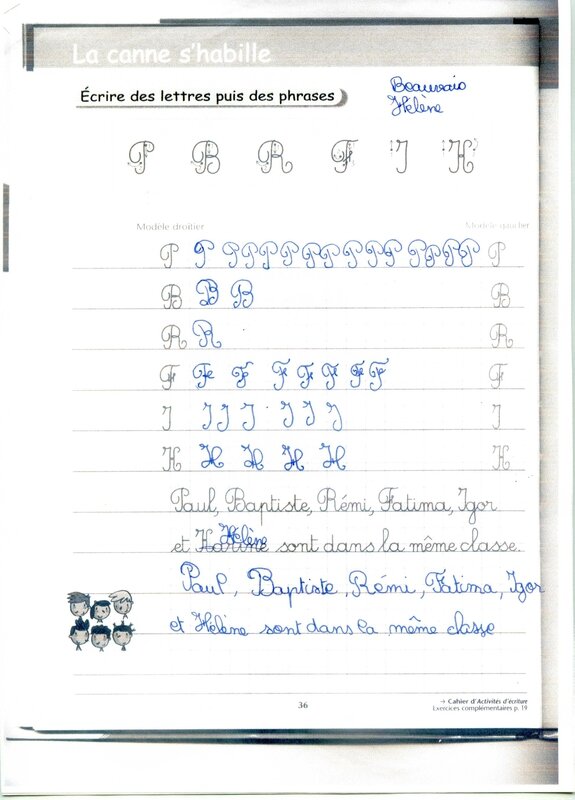 La canne s'habille
Écrire des lettres puis des phrases
Beauvais
Hélène
P B R F I H
Modèle droitier Modèle gaucher
P P P P P P P P P P P P P P P P
B B B B
R R R
F F F F F F F F F
I I I I I I I I
H H H H H H
Paul, Baptiste, Rémi, Fatima, Igor
Hélène
et Karine sont dans la même classe.
Paul, Baptiste, Rémi, Fatima, Igor
et Hélène sont dans la même classe
36
→ Cahier d'Activités d'écriture
Exercices complémentaires p. 19